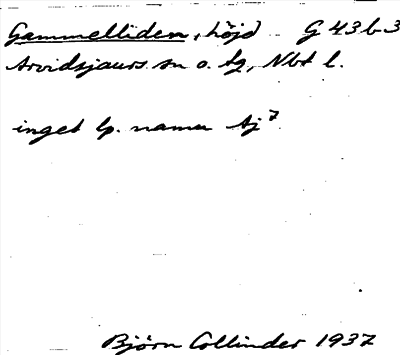 Gammelliden, höjd G 43 b 3
Arvidsjaurs sn o. tg, Nbt l.
inget lp. namn Aj 7
Björn Collinder 1937